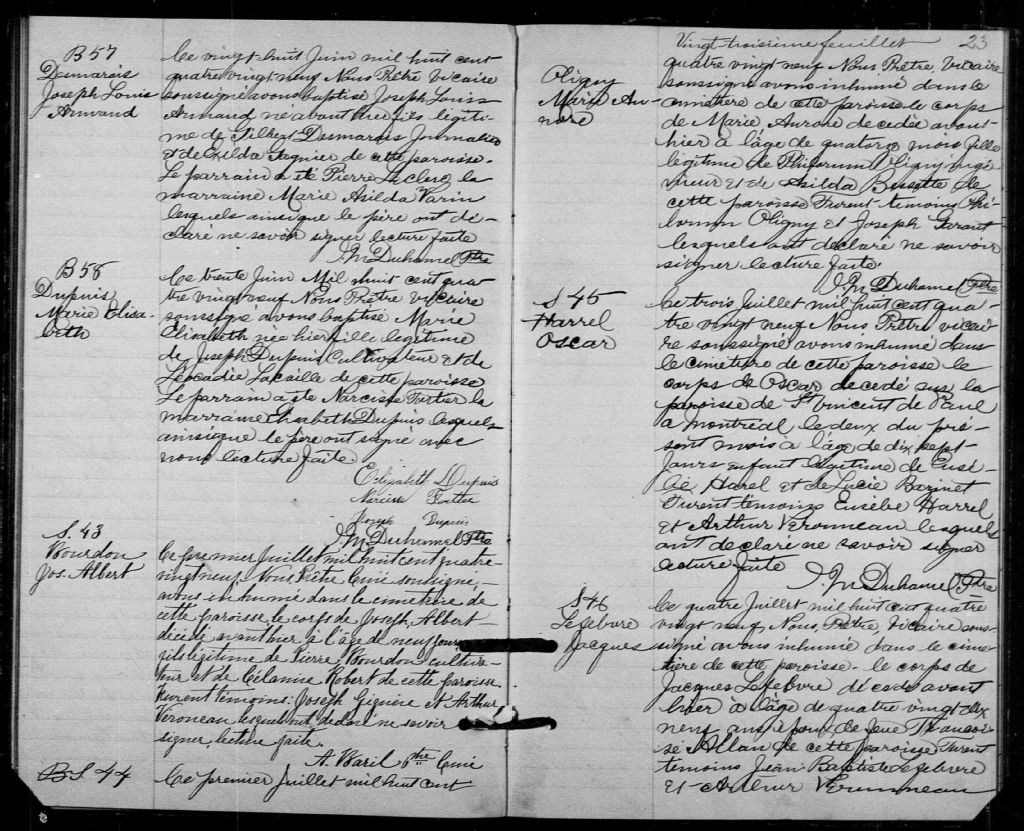 B 57
Desmarais
Joseph Louis
Armand
Ce vingt-huit Juin mil huit cent
quatre vingt neuf Nous Prêtre Vicaire
soussigné avons baptisé Joseph Louis
Armand né avant hier fils légiti-
me de Filbert Desmarais Journalier
et de Exilda Gagnier de cette paroisse.
Le parrain a été Pierre Leclerc la
marraine Marie Anilda Varin
lesquels ainsi que le père ont dé-
claré ne savoir signer lecture faite
J. M Duhamel Ptre
B 58
Dupuis
Marie Elisa-
beth
Ce trente Juin Mil huit cent qua
tre vingt neuf Nous Prêtre Vicaire
soussigné avons baptisé Marie
Elizabeth née hier fille légitime
de Joseph Dupuis Cultivateur et de
Léocadie Lacaille de cette paroisse
Le parrain a été Narcisse Fortier la
marraine Elisabeth Dupuis lesquels
ainsi que le père ont signé avec
nous lecture faite.
Elizabeth Dupuis
Narcisse Fortier
Joseph Dupuis
J. M Duhamel Ptre
S. 43
Bourdon
Jos. Albert
Ce premier Juillet mil huit cent quatre-
vingt neuf, Nous Prêtre Curé soussigné,
avons inhumé dans le cimetière de
cette paroisse le corps de Joseph, Albert
décédé avant hier à l'âge de neuf jours
fils légitime de Pierre Bourdon cultiva-
teur et de Célanire Robert de cette paroisse.
Furent témoins: Joseph Giguère et Arthur
Veroneau lesquels ont déclaré ne savoir
signer, lecture faite.
A. Ptre Curé
BS 44
Ce premier Juillet mil huit cent
Vingt-troisième feuillet 23
Oligny
Marie Au-
rore
quatre vingt neuf Nous Prêtre, Vicaire
soussigné avons inhumé dans le
cimetière de cette paroisse le corps
de Marie Aurore décedée avant-
hier à l'âge de quatorze mois fille
légitime de Oligny
et de Anilda de
cette paroisse Furent temoins
Oligny et Joseph
lesquels ont declaré ne savoir
signer lecture faite.
J. M Duhamel Ptre
S 45
Harrel
Oscar
Ce trois Juillet mil huit cent qua-
tre vingt neuf Nous Prêtre vicai
re soussigné avons inhumé dans
le cimetière de cette paroisse le
corps de Oscar decedé sur la
paroisse de St Vincent de Paul
à montréal le deux du pré-
sent mois à l'âge de dix sept
Jours enfant légitime de Eusè-
be Harel et de Lucie Barinet
Furent témoins Eusèbe Harrel
et Arthur Veronneau lesquels
ont declaré ne savoir signer
lecture faite
J. M Duhamel Ptre
S 46
Lefebvre
Jacques
Ce quatre Juillet mil huit cent quatre
vingt neuf, Nous, Prêtre, Vicaire sous-
signé avons inhumé dans le cime-
tière de cette paroisse le corps de
Jacques Lefebvre décédé avant
hier à l'âge de quatre vingt dix
neuf ans époux de feue
Allan de cette paroisse Furent
temoins Jean Baptiste Lefebvre
et Arthur Veronneau